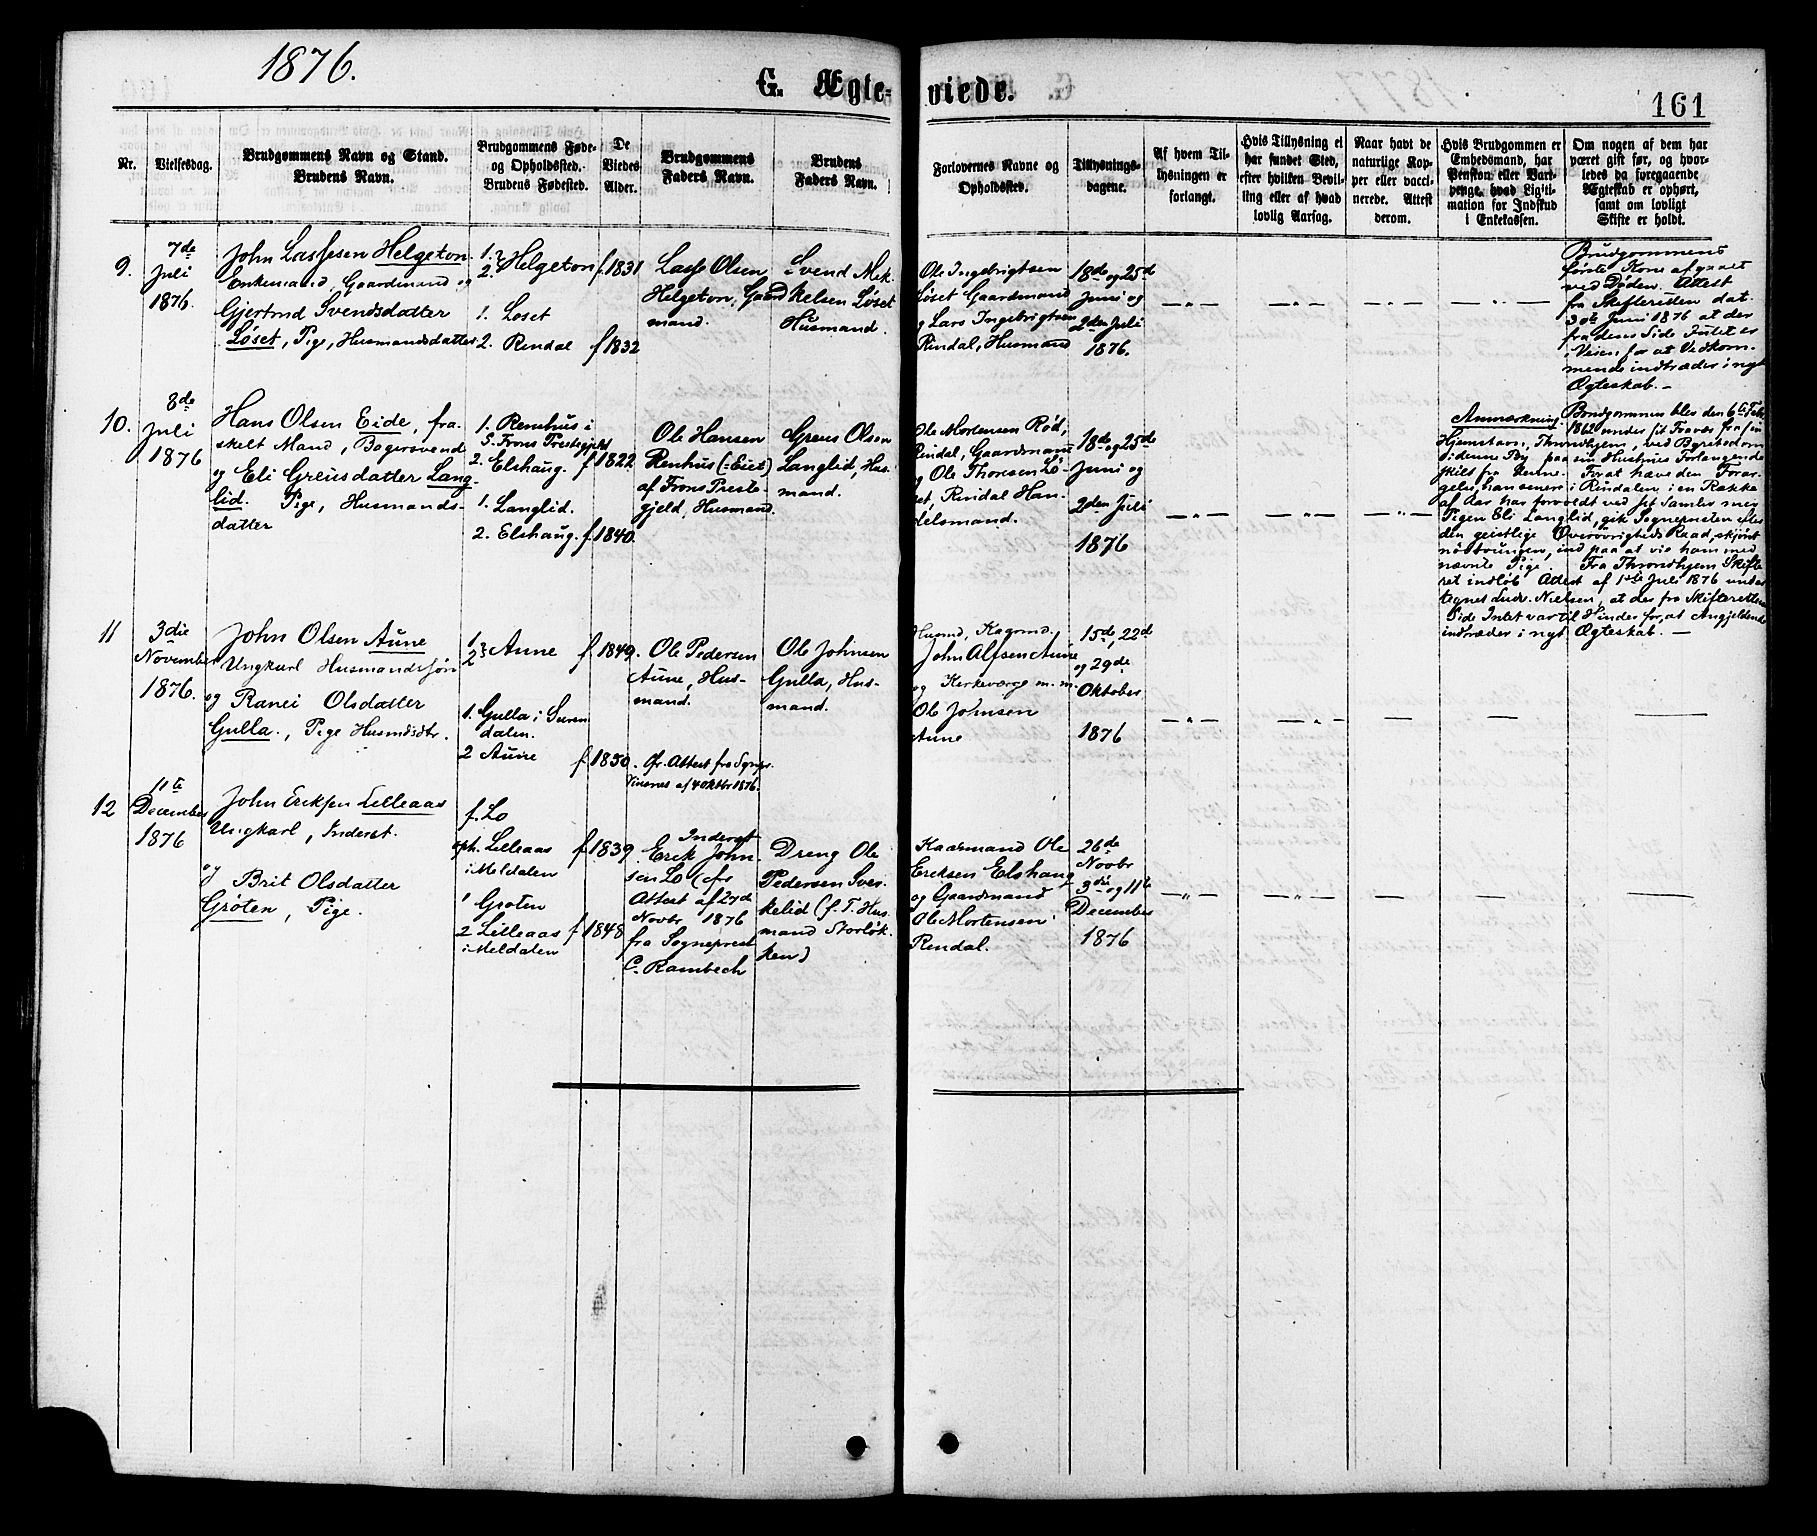 1876.
G. Ægteviede.
161
Nr.
Vielsesdag.
Brudgommens Navn og Stand.
Brudens Navn.
Brudgommens Føde-
og Opholdssted.
Brudens Fødested.
De
Viedes
Alder.
Brudgommens
Faders Navn.
Brudens
Faders Navn.
Forlovernes Navne og
Opholdssted.
Tillysnings-
dagene.
Af hvem Til-
lysningen er
forlangt.
Hvis Tillysning ei
har fundet Sted,
efter hvilken Bevil-
ling eller af hvad
lovlig Aarsag.
Naar havt de
naturlige Kop-
per eller vacci-
nerede. Attest
derom.
Hvis Brudgommen er
Embedsmand, har
Pension eller Vart-
penge, hvad Ligiti-
mation for Indskud
i Enkekassen.
Om nogen af dem har
været gift før, og hvor-
ledes da foregaaende
Ægteskab er ophørt,
samt om lovligt
Skifte er holdt.
9.
7de
Juli
1876.
John Larssen Helgeton
Enkemand, Gaardmand og
Gjertrud Svendsdatter
Løset, Pige, Husmandsdatter
1. 2. Helgeton
1. Løset
2. Rindal
f. 1831
f 1832
Lars Olsen
Helgeton, Gaard
mand.
Svend Mik
kelsen Løset
Husmand.
Ole Ingebrigtsen
Løset Gaardmand
og Lars Ingebrigtsen
Rindal, Husmand
18de og 25de
Juni og
2den Juli
1876.
Brudgommens
første Kone afgaaet
ved Døden. Attest
fra Skifteretten dat.
30te Juni 1876 at der
fra dens Side Intet er
i Veien for at Vedkom-
mende indtræder i nyt
Ægteskab. —
10.
8de
Juli
1876
Hans Olsen Eide, fra-
skilt Mand, Bagersvend
og Eli Greusdatter Lang-
lid. Pige, Husmands-
datter
1. Renhus i
S. Frons Prestegjeld
2. Elshaug.
1. Langlid.
2. Elshaug.
f. 1822
f. 1840.
Ole Hansen
Renhus (: Eie:)
af Frons Preste-
gjeld, Husmand.
Greus Olsen
Langlid, Hus-
mand.
Ole Mortensen Rød,
Rindal, Gaardmand
og Ole Thoresen Lø-
set, Rindal Han-
delsmand.
18de og 25de
Juni og
2den Juli
1876
Anmærkning. Brudgommen blev den 6te Febr.
1862 under sit Fravær fra sin
Hjemstavn, Throndhjem, ved Byretsdom
sidenne By paa sin Hustrues Forlangende
skilt fra denne. For at hæve den Forar-
gelse, han senere i Rindalen i en Række
af Aar har forvoldt ved sit Samliv med
Pigen Eli Langlid, gik Sognepresten efter
den geistlige Overøvrigheds Raad, skjønt
nødtvungen, ind paa at vie ham med
nævnte Pige. Fra Throndhjem Skifte
ret indløb Attest af 1ste Juli 1876 under
tegnet Ludv. Nielsen, at der fra Skifterettens
Side Intet var til Hinder for, at Angjeldende
indtræder i nyt Ægteskab. —
11
3die
November
1876.
John Olsen Aune
Ungkarl Husmandssøn
og Ranei Olsdatter
Gulla., Pige Husmdsdtr.
1. 2. Aune
1. Gulla i Suren
dalen.
2 Aune
f. 1849.
f. 1850.
Ole Pedersen
Aune, Hus-
mand.
Ole Johnsen
Gulla, Hus-
mand.
cfr. Attest fra Sgnpr.
af 4 Oktbr 1876.
John Alfsen Aune
og Kirkeværge m. m.
Ole Johnsen
Aune
15de, 22de
og 29de
Oktober
1876
12
11te
December
1876
John Eriksen Lilleaas
Ungkarl, Inderst.
og
Brit Olsdatter
Grøten, Pige.
f. Lo
oph. Lilleaas
i Meldalen
1 Grøten
2 Lilleaas
i Meldalen
f 1839
f 1848
Inderst
Erik John-
sen Lo (cfr
Attest af 27de
Novbr 1876
fra Sogneprest
C. Rambech
Dreng Ole
Pedersen Sver-
kelid (f. T. Hus-
mand Storløk-
ken)
Kaarmand Ole
Eriksen Elshaug
og Gaardmand
Ole Mortensen
Rindal.
26de
Novbr
3die og 11te
December
1876